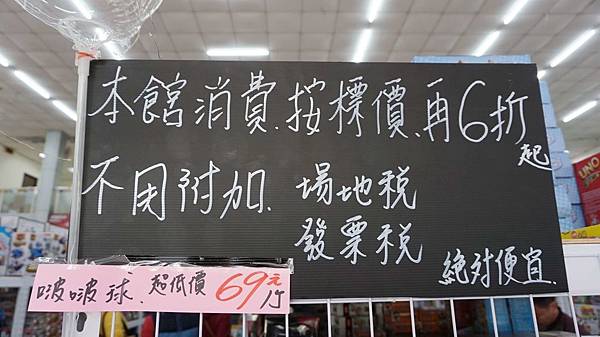 本館消費.按標價.再6折起
不用附加.場地稅
發票稅
絕对便宜.
啵啵球.超低價69元/斤
UNO